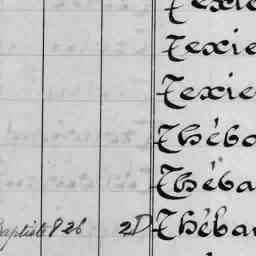 Texie
Texie
Texie
Théba
Théba
Baptiste 826 2D Théba